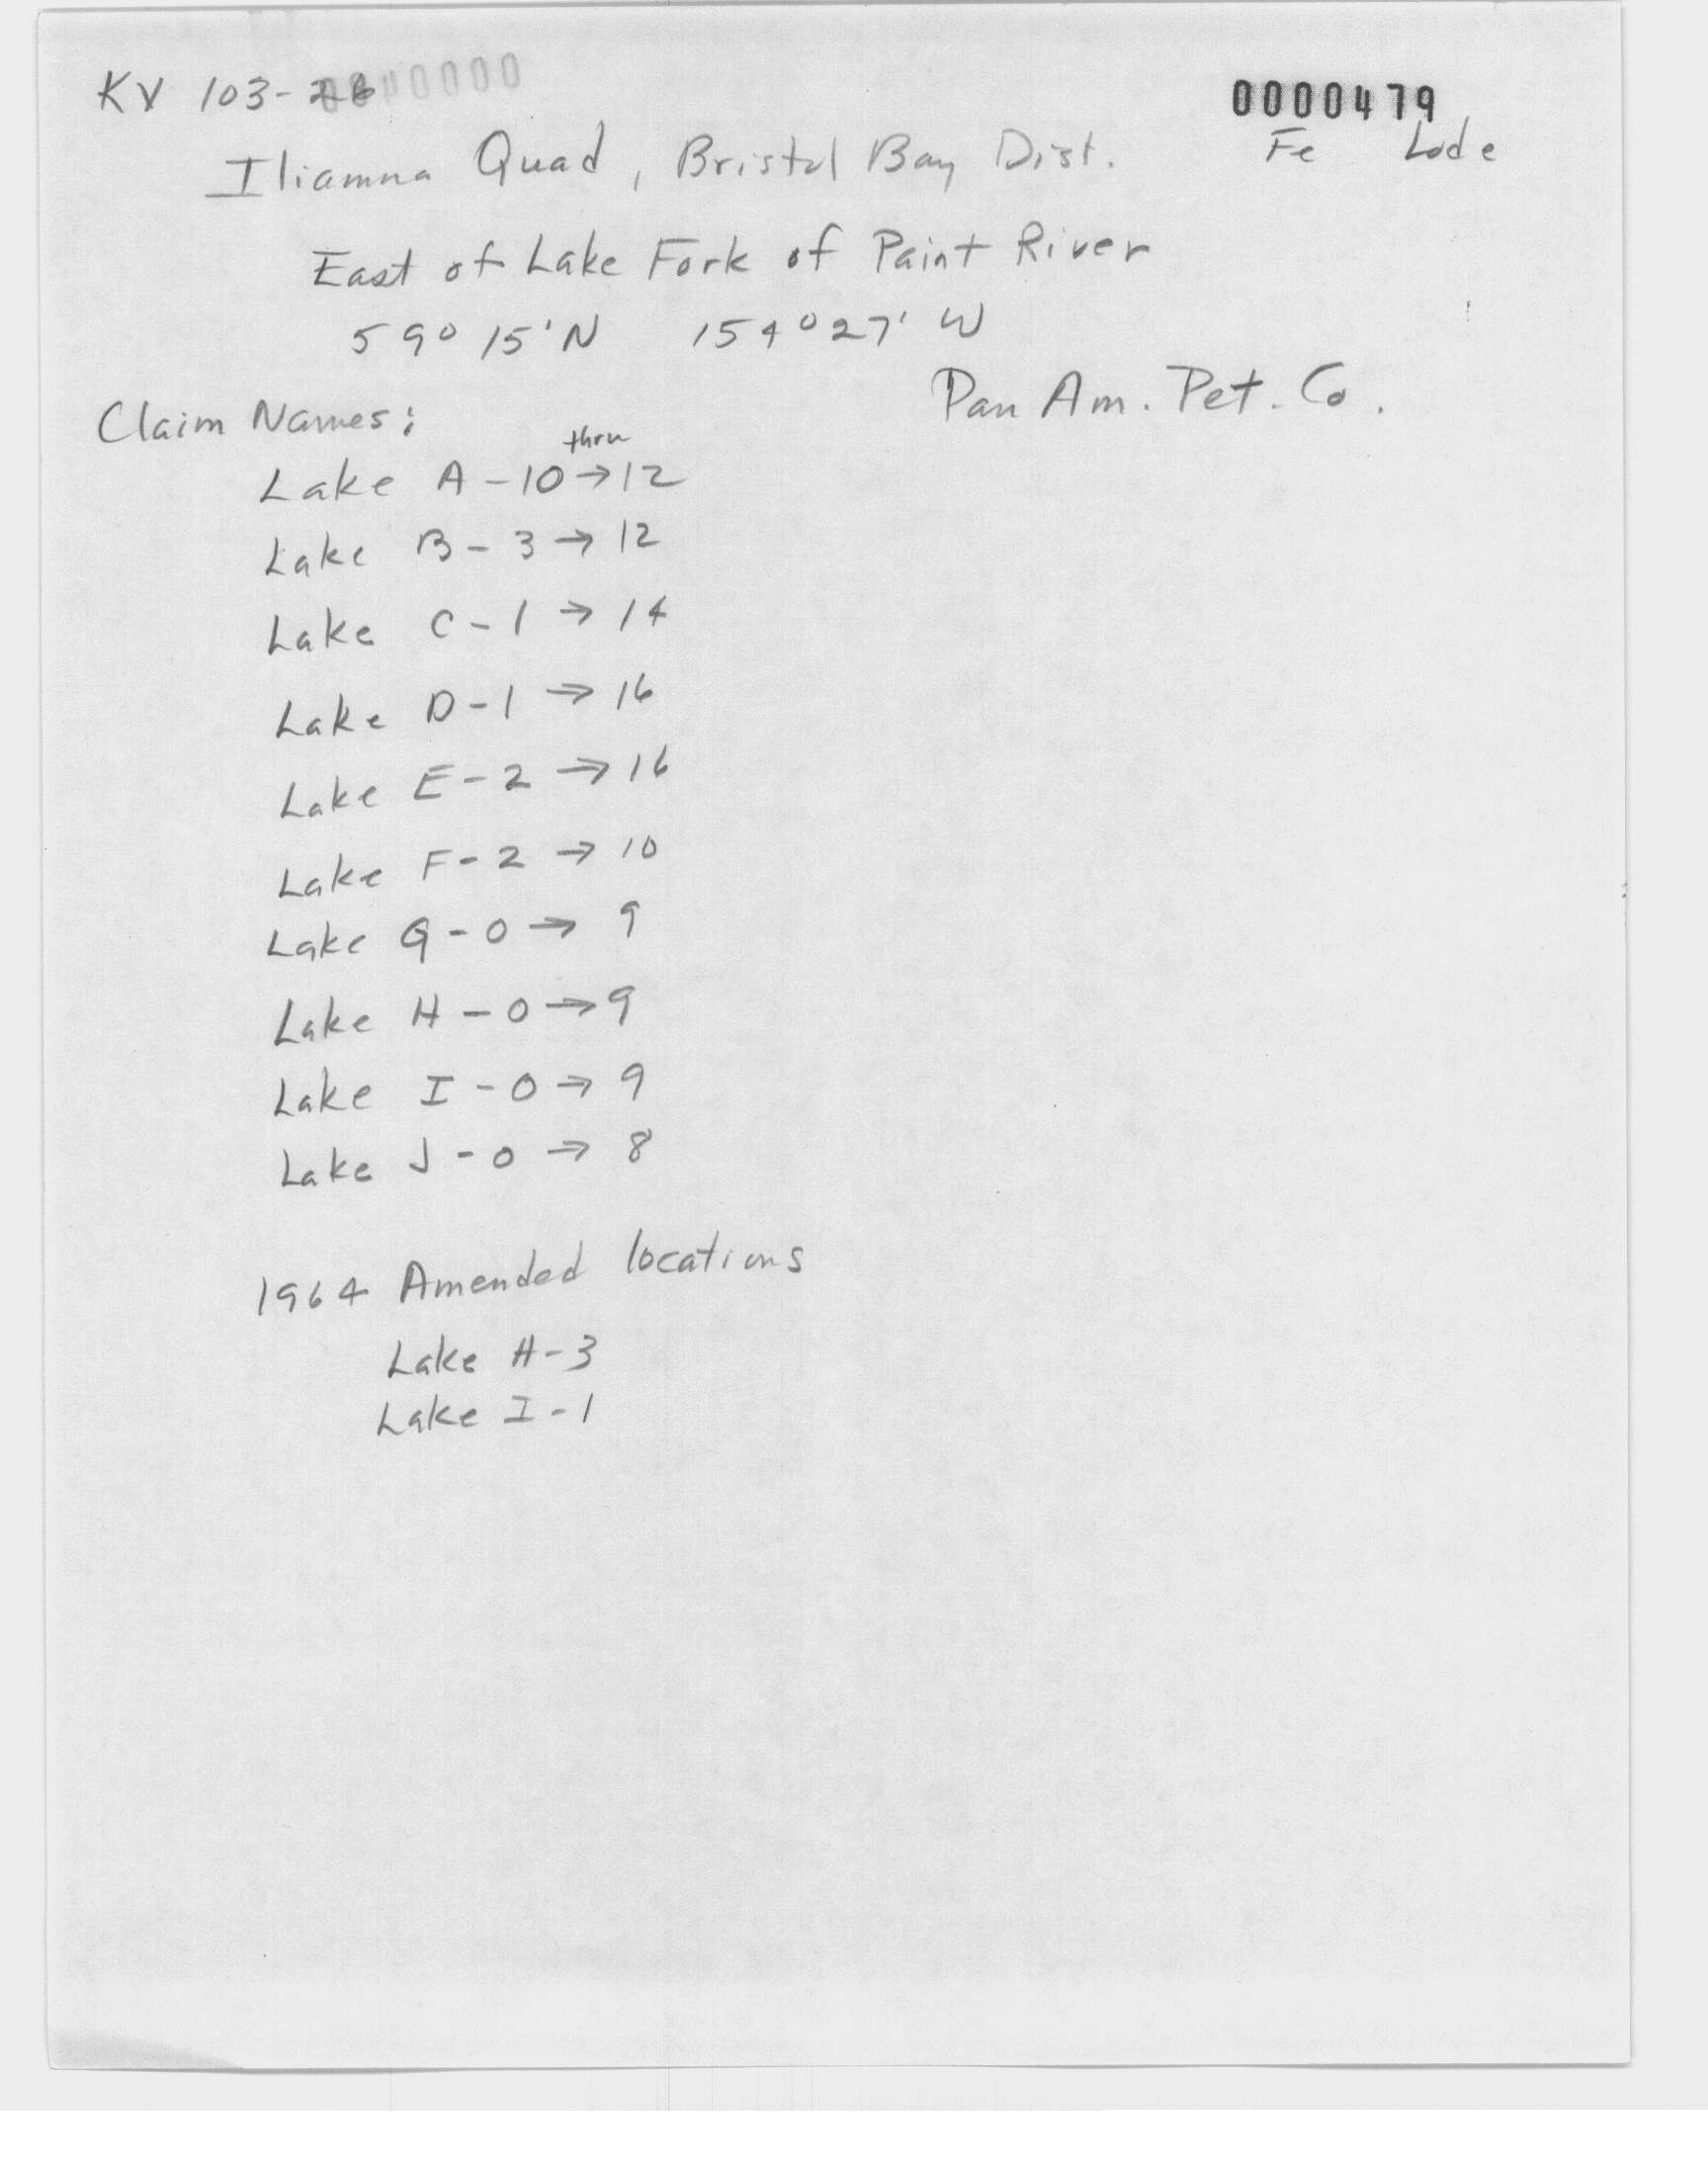 KV 103-
0000479
Fe Lode
Iliamna Quad, Bristol Bay Dist.
East of Lake Fork of Paint River
59° 15' N 154° 27' W
Pan Am. Pet. Co.
Claim Names:
thru
Lake A-10→12
Lake B-3→12
Lake C-1→14
Lake D-1→16
Lake E-2→16
Lake F-2→10
Lake G-0→9
Lake H-0→9
Lake I-0→9
Lake J-0→8
1964 Amended locations
Lake H-3
Lake I-1